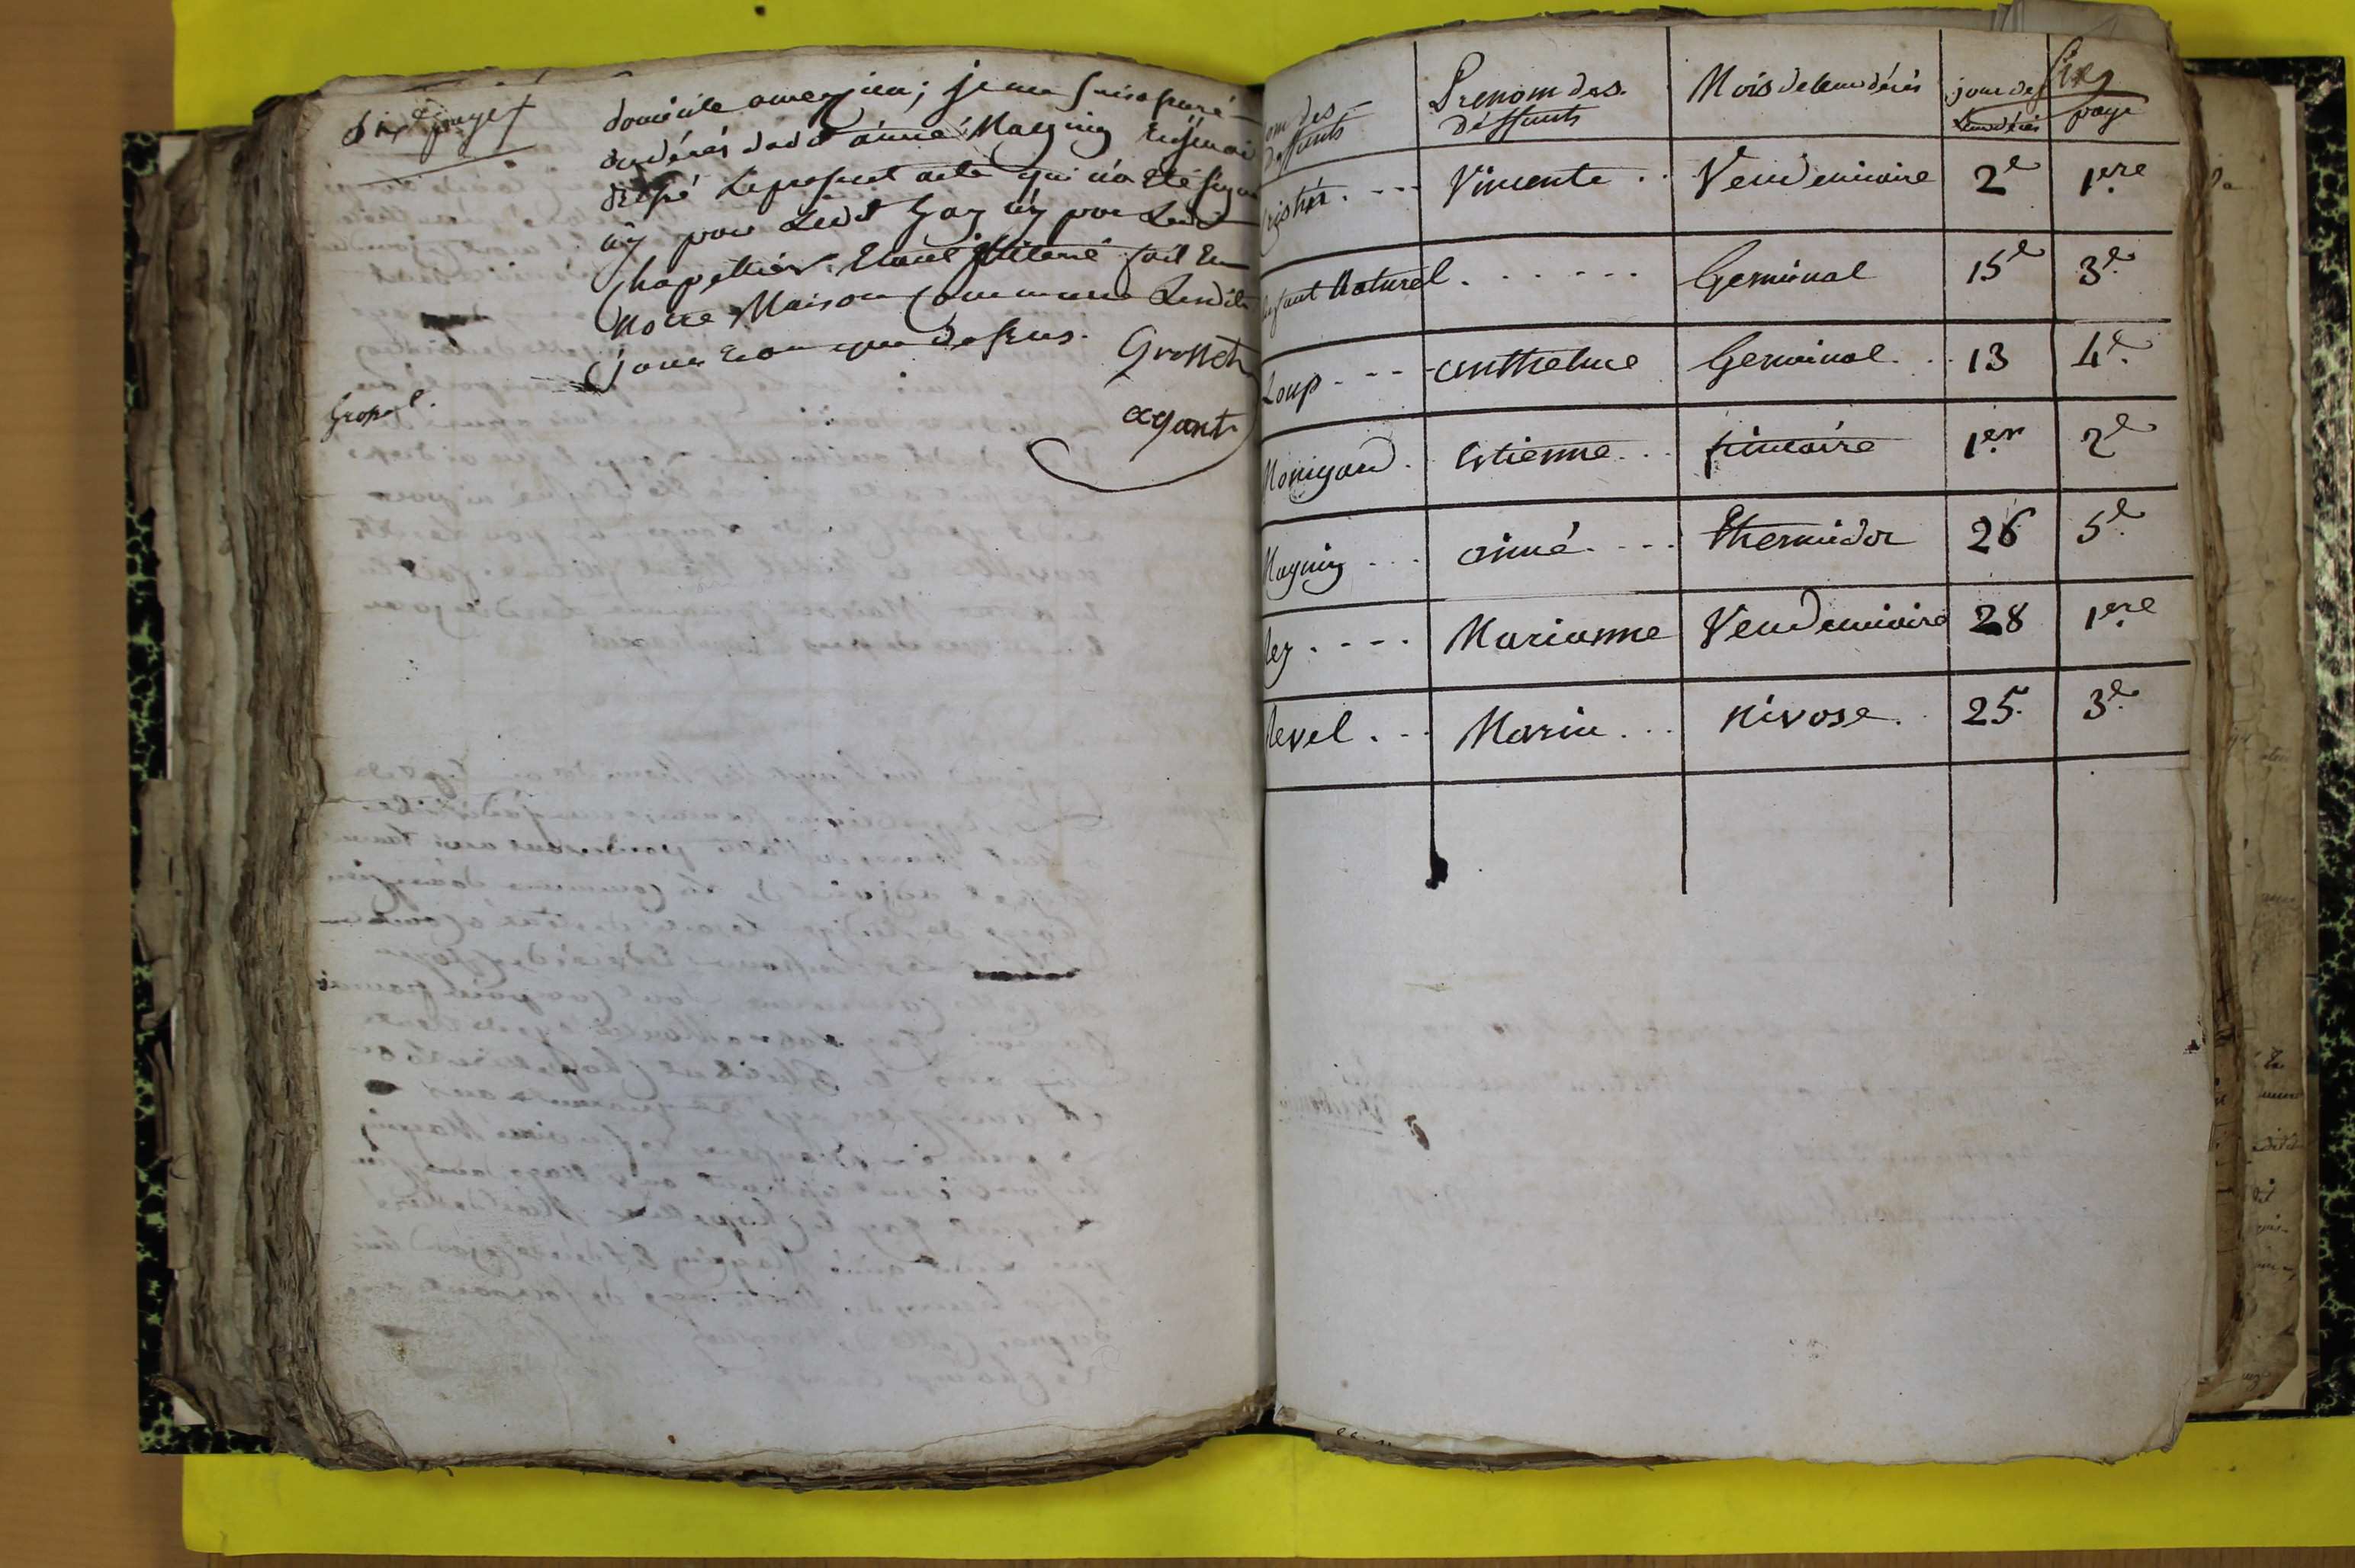 Six.e page
domicile aumeyjeu; je me suis assuré
du décés dudit aimé Magnin En Jenai
dressé Le present acte qui n'a Eté signé
ny pour Ledit Gay ny pour Ledit
Chapellier. Etant illiteré fait En
Notre Maison Commune Lesdits
jour Et an que dessus.
Grosset
agent
Gropel.
Prenom des Deffunts
Mois de leur décés
jour de Leur décés
page
Vincente . .
Vendemiaire
2e
1ere
Enfant Naturel . . . . . .
Germinal
15e
3e
Loup - - -
anthelme
Germinal . .
13
4e
Monigaud .
Estienne . .
frimaire
1er
2e
Magnin . . .
aimé . - - .
Thermidor
26
5e
Rey . - - .
Marianne
Vendemiaire
28
1ere
Revel . - .
Marie . . .
Nivose . .
25
3e